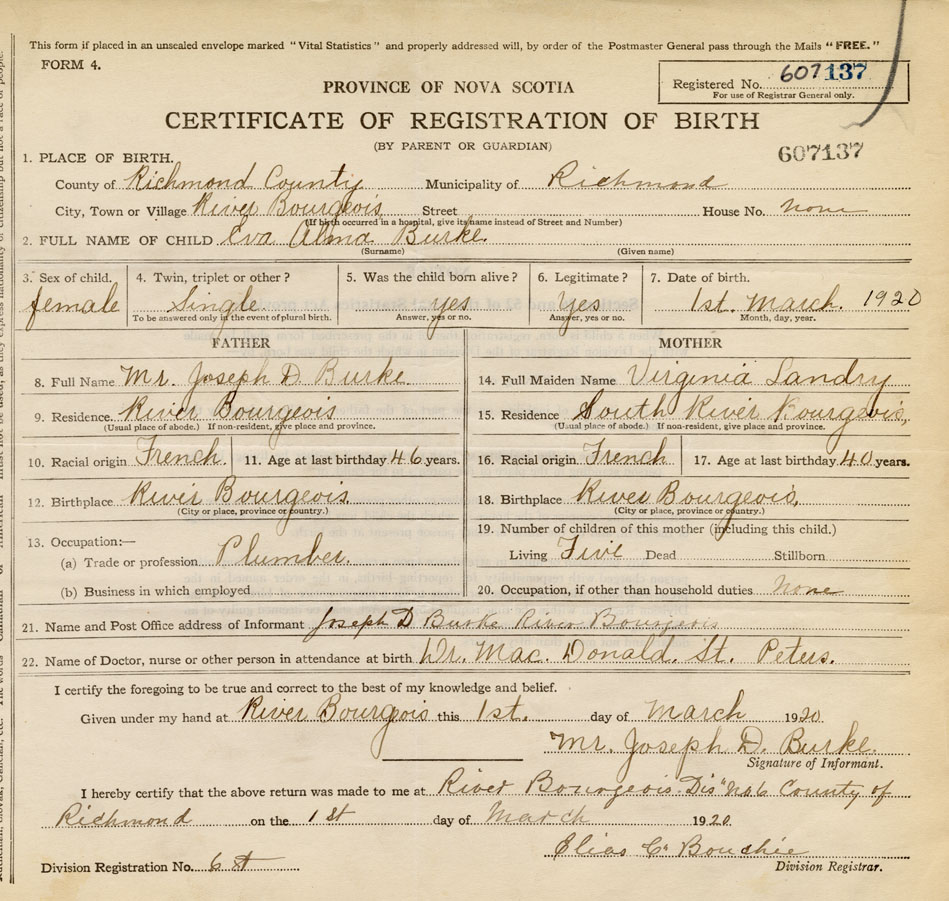 This form if placed in an unsealed envelope marked "Vital Statistics" and properly addressed will, by order of the Postmaster General pass through the Mails "FREE."
FORM 4.
Registered No. 607137
For use of Registrar General only.
PROVINCE OF NOVA SCOTIA
CERTIFICATE OF REGISTRATION OF BIRTH
(BY PARENT OR GUARDIAN)
607137
1. PLACE OF BIRTH.
County of Richmond County Municipality of Richmond
City, Town or Village River Bourgeois Street House No. none
(If birth occurred in a hospital, give its name instead of Street and Number)
2. FULL NAME OF CHILD Eva Alma Burke.
(Surname) (Given name)
3. Sex of child. 4. Twin, triplet or other? 5. Was the child born alive? 6. Legitimate? 7. Date of birth.
female Single yes Yes 1st. March. 1920
To be answered only in the event of plural birth. Answer, yes or no. Answer, yes or no. Month, day, year.
FATHER
8. Full Name Mr. Joseph D. Burke.
9. Residence. River Bourgeois
(Usual place of abode.) If non-resident, give place and province.
10. Racial origin French. 11. Age at last birthday 46 years.
12. Birthplace River Bourgeois
(City or place, province or country.)
13. Occupation:—
(a) Trade or profession Plumber.
(b) Business in which employed
MOTHER
14. Full Maiden Name Virginia Landry
15. Residence South River Bourgeois,
(Usual place of abode.) If non-resident, give place and province.
16. Racial origin French 17. Age at last birthday 40 years.
18. Birthplace River Bourgeois,
(City or place, province or country.)
19. Number of children of this mother (including this child.)
Living Five Dead Stillborn
20. Occupation, if other than household duties None
21. Name and Post Office address of Informant Joseph D Burke River Bourgeois
22. Name of Doctor, nurse or other person in attendance at birth Dr. Mac. Donald. St. Peters.
I certify the foregoing to be true and correct to the best of my knowledge and belief.
Given under my hand at River Bourgeois this 1st. day of March 1920
Mr. Joseph D. Burke.
Signature of Informant.
I hereby certify that the above return was made to me at River Bourgeois Dis" No 6 County of
Richmond on the 1st day of March 1920
Elias C. Bouchie
Division Registrar.
Division Registration No. 6